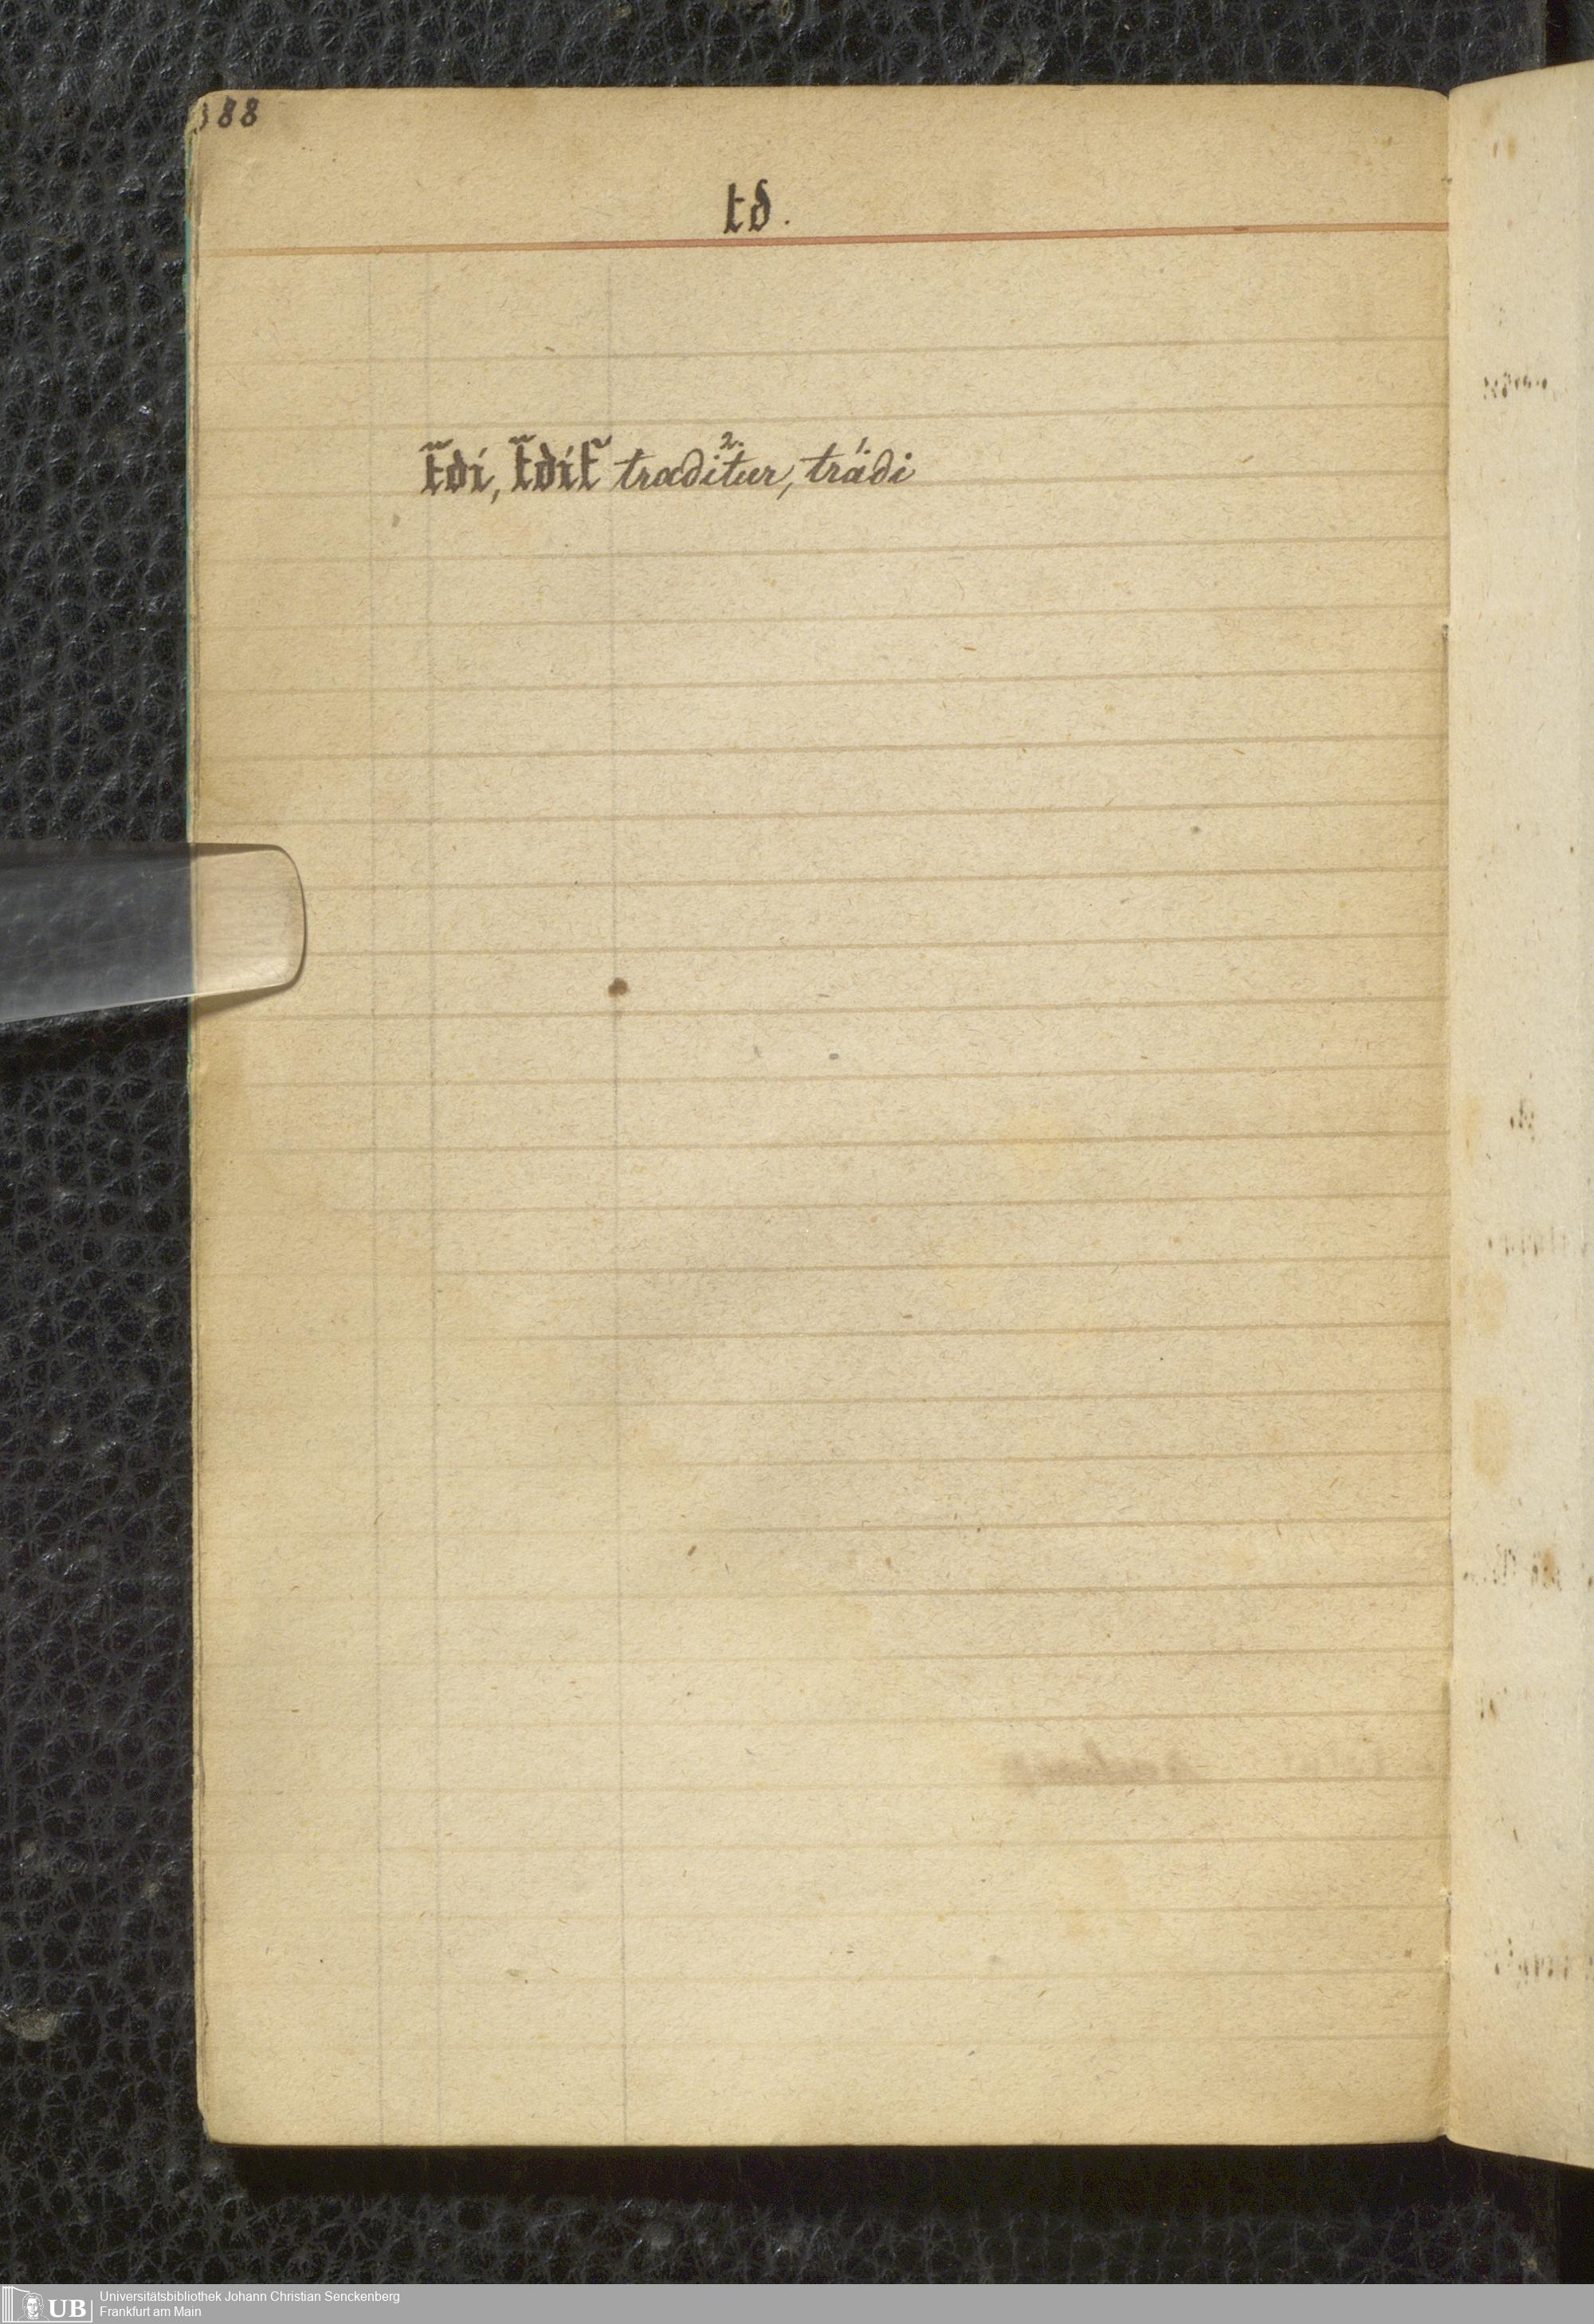 388
td.
t̃di, t̃dit̃ traditur, 2. tradi 1.
UB Universitätsbibliothek Johann Christian Senckenberg
Frankfurt am Main